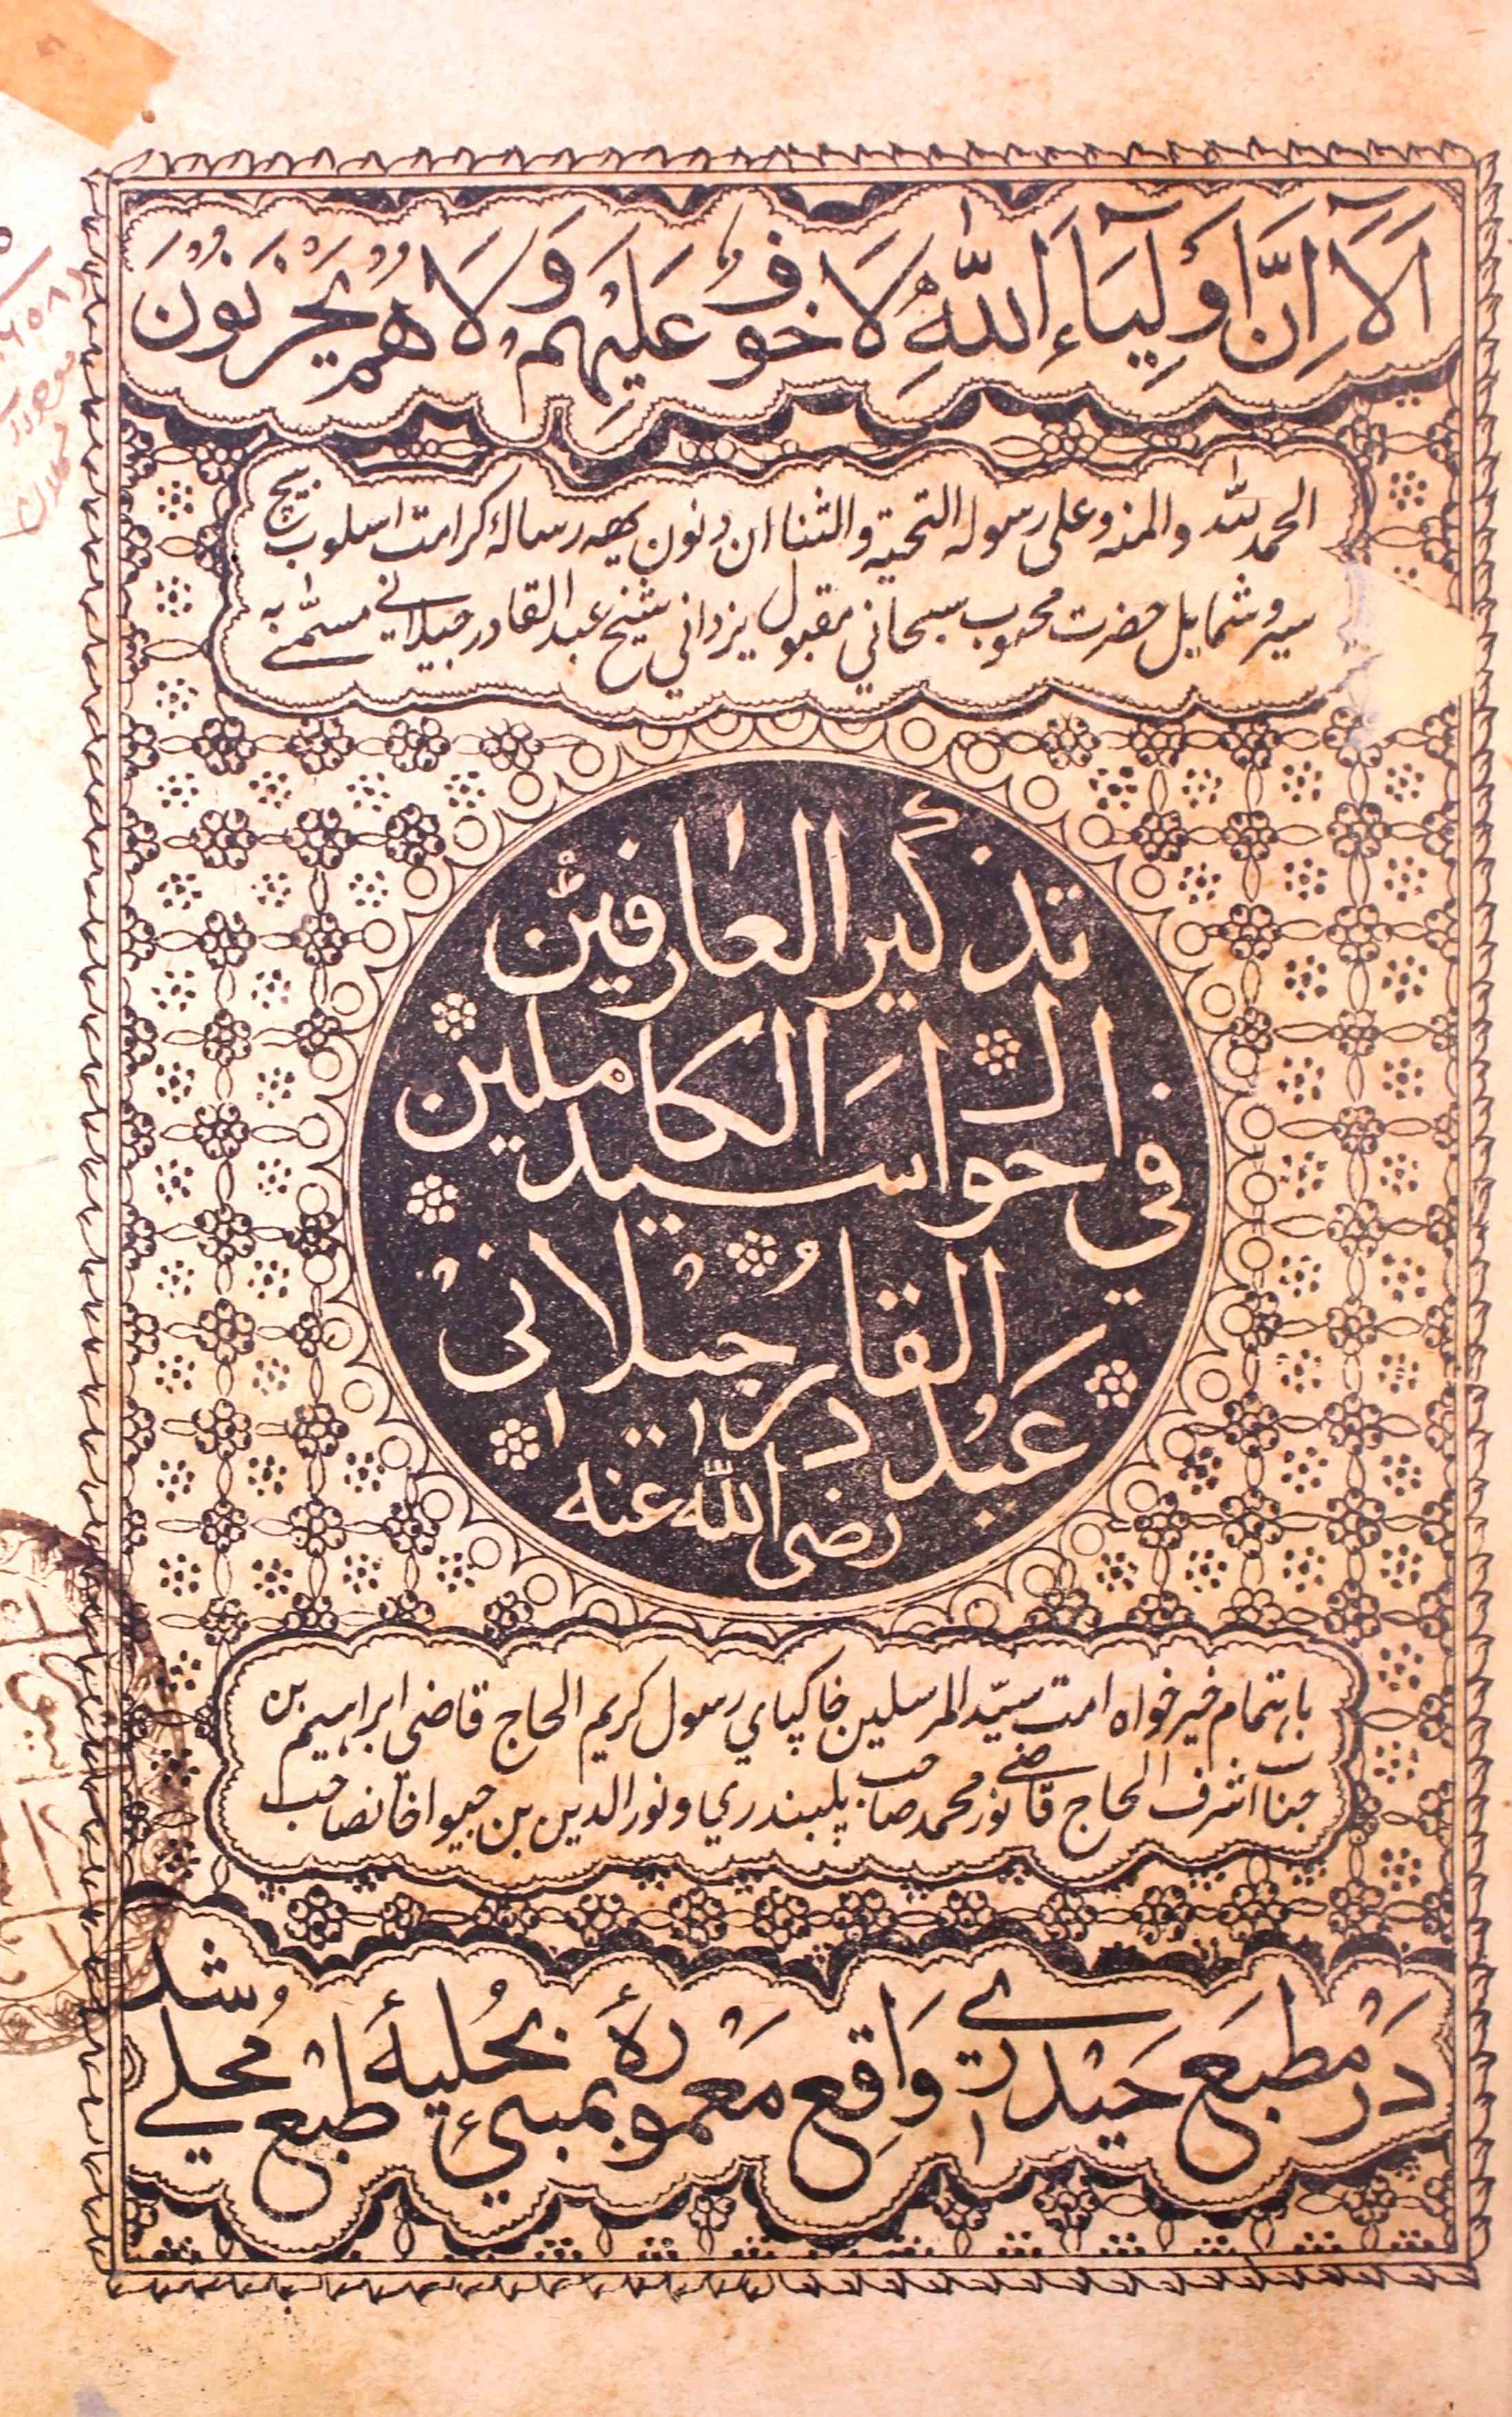 اَلَآ اِنَّ اَوْلِيَآءَ اللّٰهِ لَا خَوْفٌ عَلَيْهِمْ وَلَا هُمْ يَحْزَنُوْنَ
الحمد للّٰه والمنه وعلی رسوله التحیة والثنا ان دنون یهه رساله کرامت اسلوب بیچ
سیر و شمایل حضرت محبوب سبحانی مقبول یزدانی شیخ عبد القادر جیلانی مسمّٰے به
تذکیر العٰارفین
فی احوال السید الکاملین
عَبْد القادرُ جیلانی
رضی اللّٰه عنه
باهتمام خیر خواه امت سیّد المرسلین خاکپای رسول کریم الحاج قاضی ابراهیم بن
جناب اشرف الحاج قاضے نور محمد صاحب پلبندری و نور الدین بن جیوا خانصاحب
دَرْ مطبَع حَیْدَرِی وَاقِع مَعْمورَهٔ بمبئ بحُلیهٔ طبْع مُحلے شد